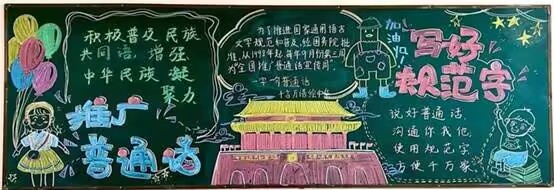 积极普及民族
共同语,增强
中华民族凝
聚力
推广
普通话
为了推进国家通用语言
文字规范和普及,经国务院批
准,从1998年起,每年9月份第三周
为全国推广普通话宣传周。
加油吖!
写好
规范字
说好普通话,
沟通你我他,
使用规范字
方便千万家